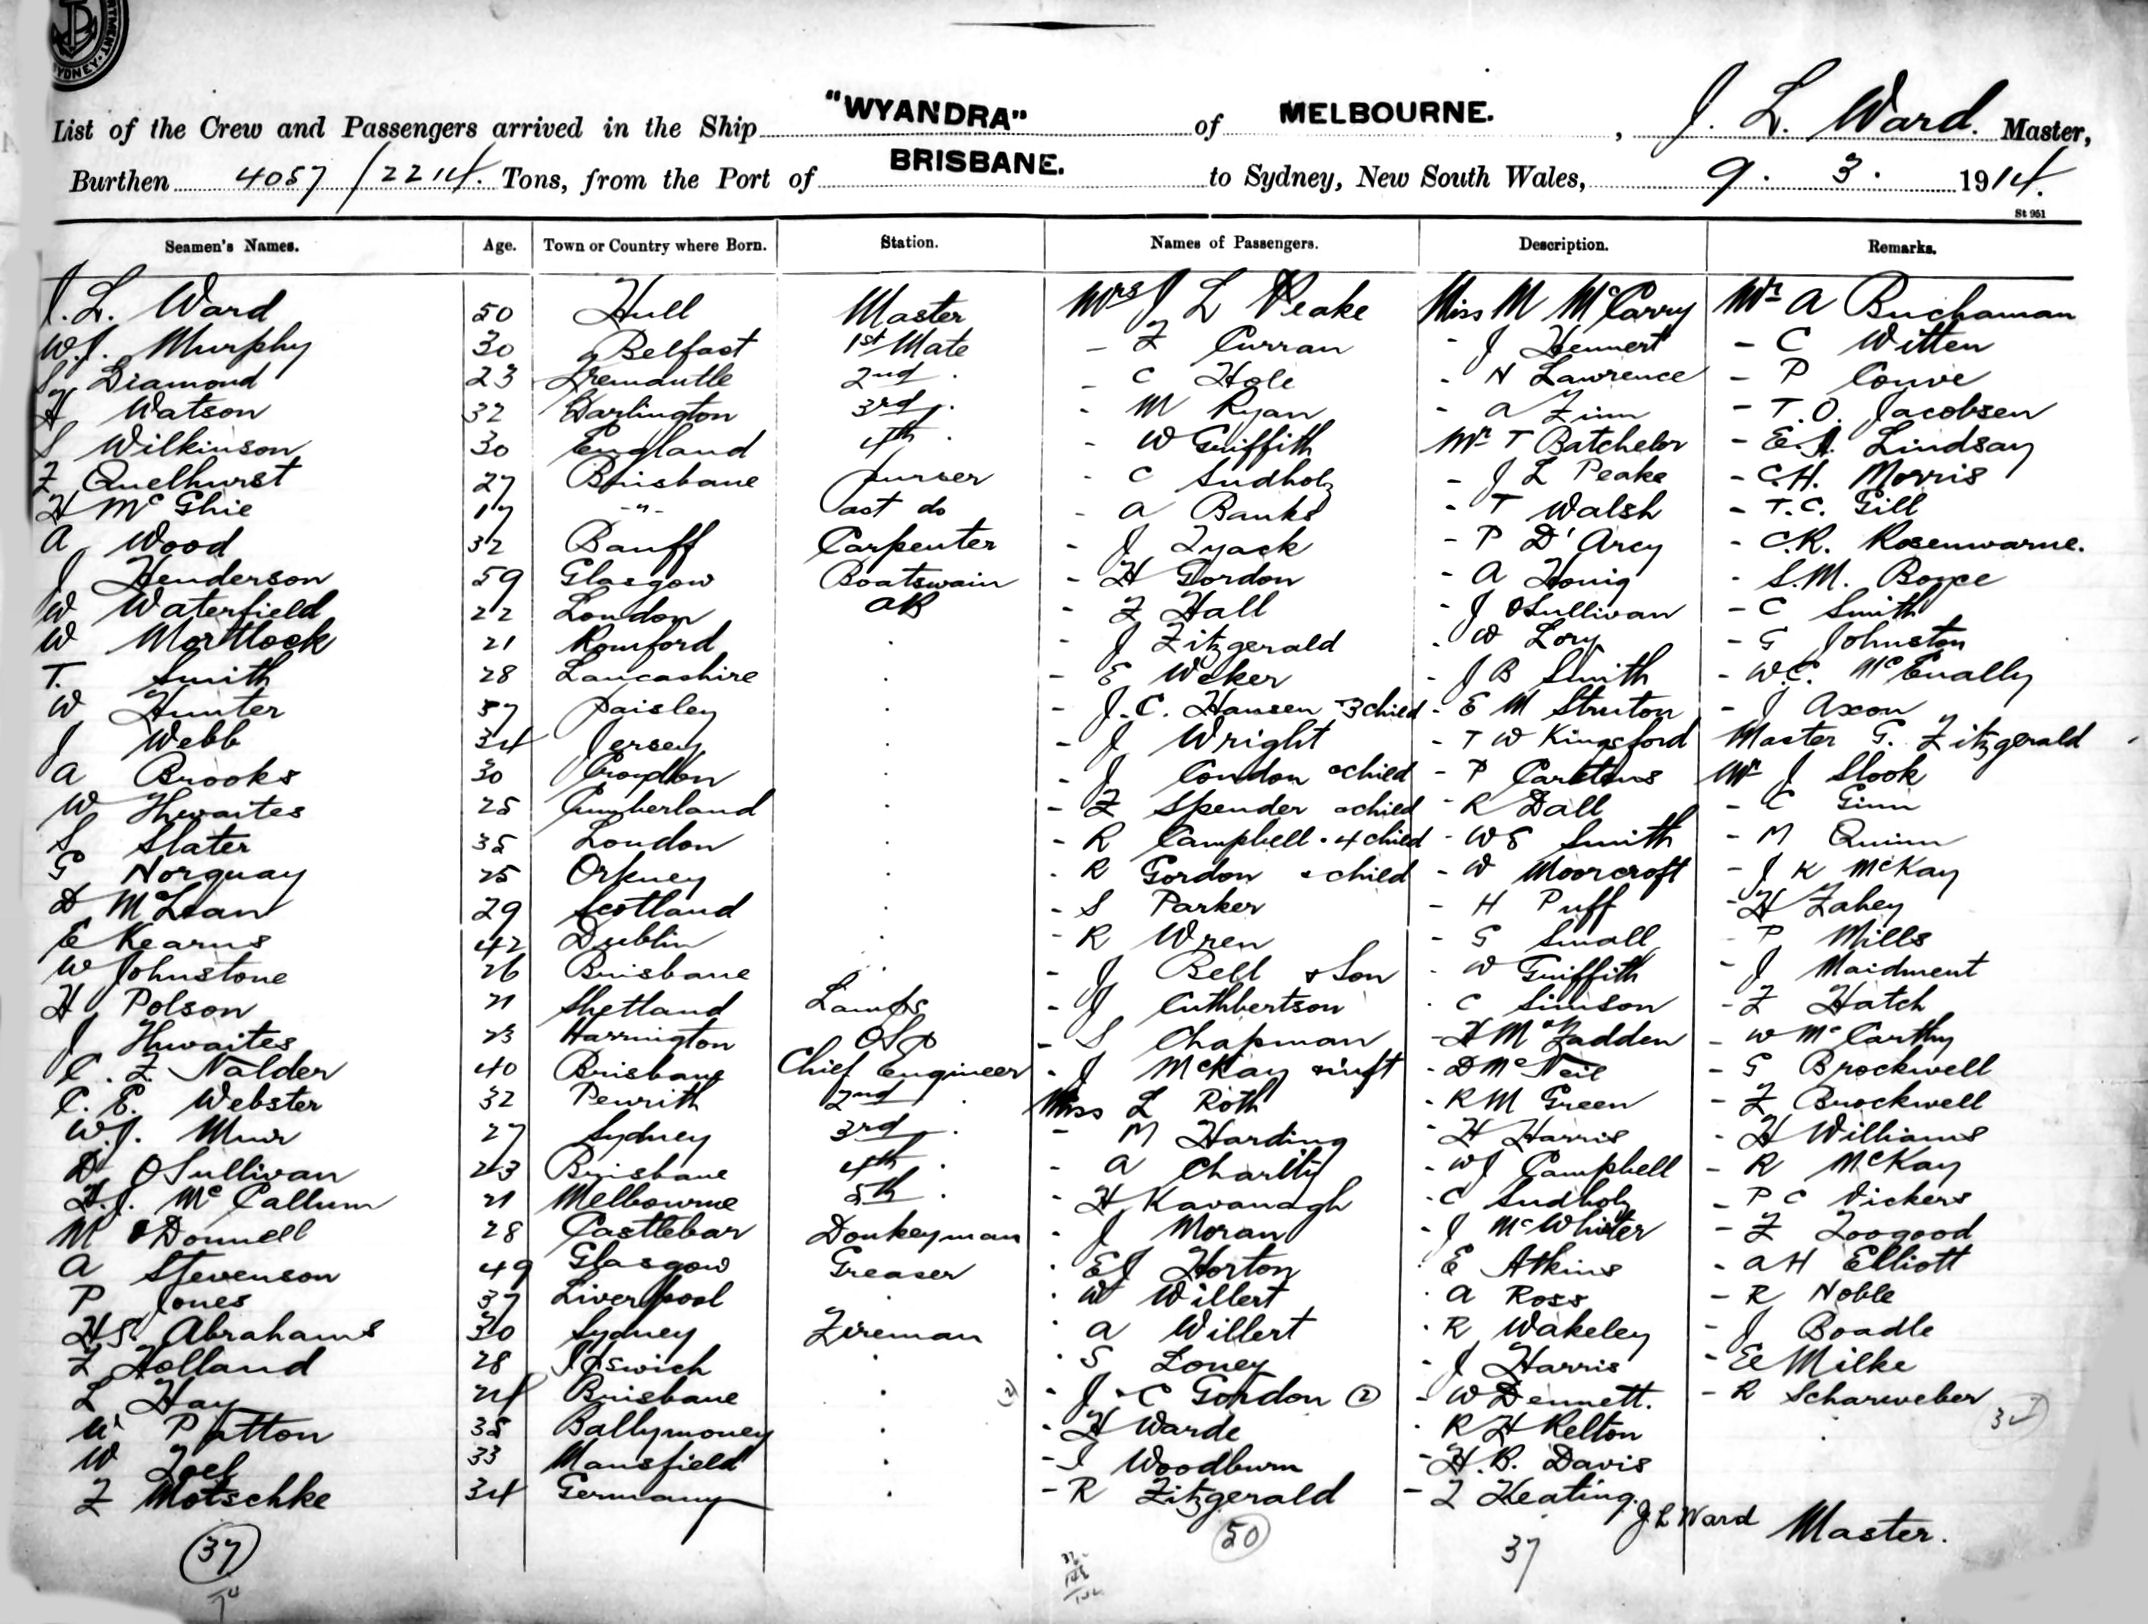 SYDNEY.
List of the Crew and Passengers arrived in the Ship "WYANDRA" of MELBOURNE. , J. L. Ward. Master,
Burthen 4057/2214. Tons, from the Port of BRISBANE. to Sydney, New South Wales, 9. 3. 1914.
St 951
Seamen's Names. Age. Town or Country where Born. Station. Names of Passengers. Description. Remarks.
J. L. Ward 50 Hull Master Mrs J L Peake Miss M McCarry Mr A Buchaman
W.J. Murphy 30 Belfast 1st Mate - F Curran - J Hennert - C Witten
S Diamond 23 Fremantle 2nd . - C Hole - N Lawrence - P Couve
H Watson 32 Darlington 3rd . - M Ryan - A Finn - T. O. Jacobsen
S Wilkinson 30 England 4th . - W Griffith Mr T Batchelor - E. A. Lindsay
F Quelhurst 27 Brisbane purser - C Sudholz - J L Peake - C.H. Morris
H McGhie 17 -"- ast do - A Banks - T Walsh - T. C. Gill
A Wood 32 Banff Carpenter - J Tyack - P D'Arcy - C.R. Rosenwarne.
J Henderson 59 Glasgow Boatswain - H Gordon - A Honig - S.M. Boyce
W Waterfield 22 London AB - F Hall - J OSullivan - C Smith
W Mortlock 21 Romford . - J Fitzgerald - W Lory - G Johnston
T. Smith 28 Lancashire . - E Weker - J B Smith - W.C. McEnally
W Hunter 37 Paisley . - J. C. Hansen 3 child - E M Struton - J Axon
J Webb 34 Jersey . - J Wright - T W Kingsford Master G. Fitzgerald
A Brooks 30 Croydon . - J Condon & child - P Carstens Mr J Slook
W Thwaites 25 Cumberland . - F Spender & child - R Dall - C Ginn
S Slater 35 London . - R Campbell . 4 child - W E Smith - M Quinn
G Norquay 25 Orkney . - R Gordon & child - W Moorcroft - J K McKay
D McLean 29 Scotland . - S Parker - H Puff - H Fahey
E Kearns 42 Dublin . - R Wren - G Small - P Mills
W Johnstone 26 Brisbane . - J Bell & Son - W Griffith - J Maidment
H Polson 21 Shetland Lamps - J Cuthbertson - C Simson - F Hatch
J Thwaites 23 Harrington OS - S Chapman - H McFadden - W McCarthy
C. F. Nalder 40 Brisbane Chief Engineer - J McKay & inft - D McNeil - G Brockwell
C. E. Webster 32 Penrith 2nd . Miss L Roth - R M Green - F Brockwell
W.J. Muir 27 Sydney 3rd . - M Harding - H Harris - H Williams
D OSullivan 23 Brisbane 4th . - A Charlty - W J Campbell - R McKay
H.J. McCallum 21 Melbourne 5th . - H Kavanagh - C Sudholz - P C Vickers
M ODonnell 28 Castlebar Donkeyman - J Moran - J McWhirter - F Toogood
A Stevenson 49 Glasgow Greaser - E J Horton - E Atkins - A H Elliott
P Jones 37 Liverpool . - W Willert - A Ross - R Noble
H.S. Abrahams 30 Sydney Fireman - A Willert - R Wakeley - J Boadle
F Holland 28 Ipswich . - S Loney - J Harris - E Milke
L Hay 24 Brisbane . (2) - J. C Gordon (2) - W Dennett. - R Scharweber
W Patton 35 Ballymoney . - H Warde - R H Relton
W Toel 33 Mansfield . - J Woodburn - H. B. Davis
F Motschke 34 Germany . - R Fitzgerald - T Keating.
J L Ward Master.
37 50 37